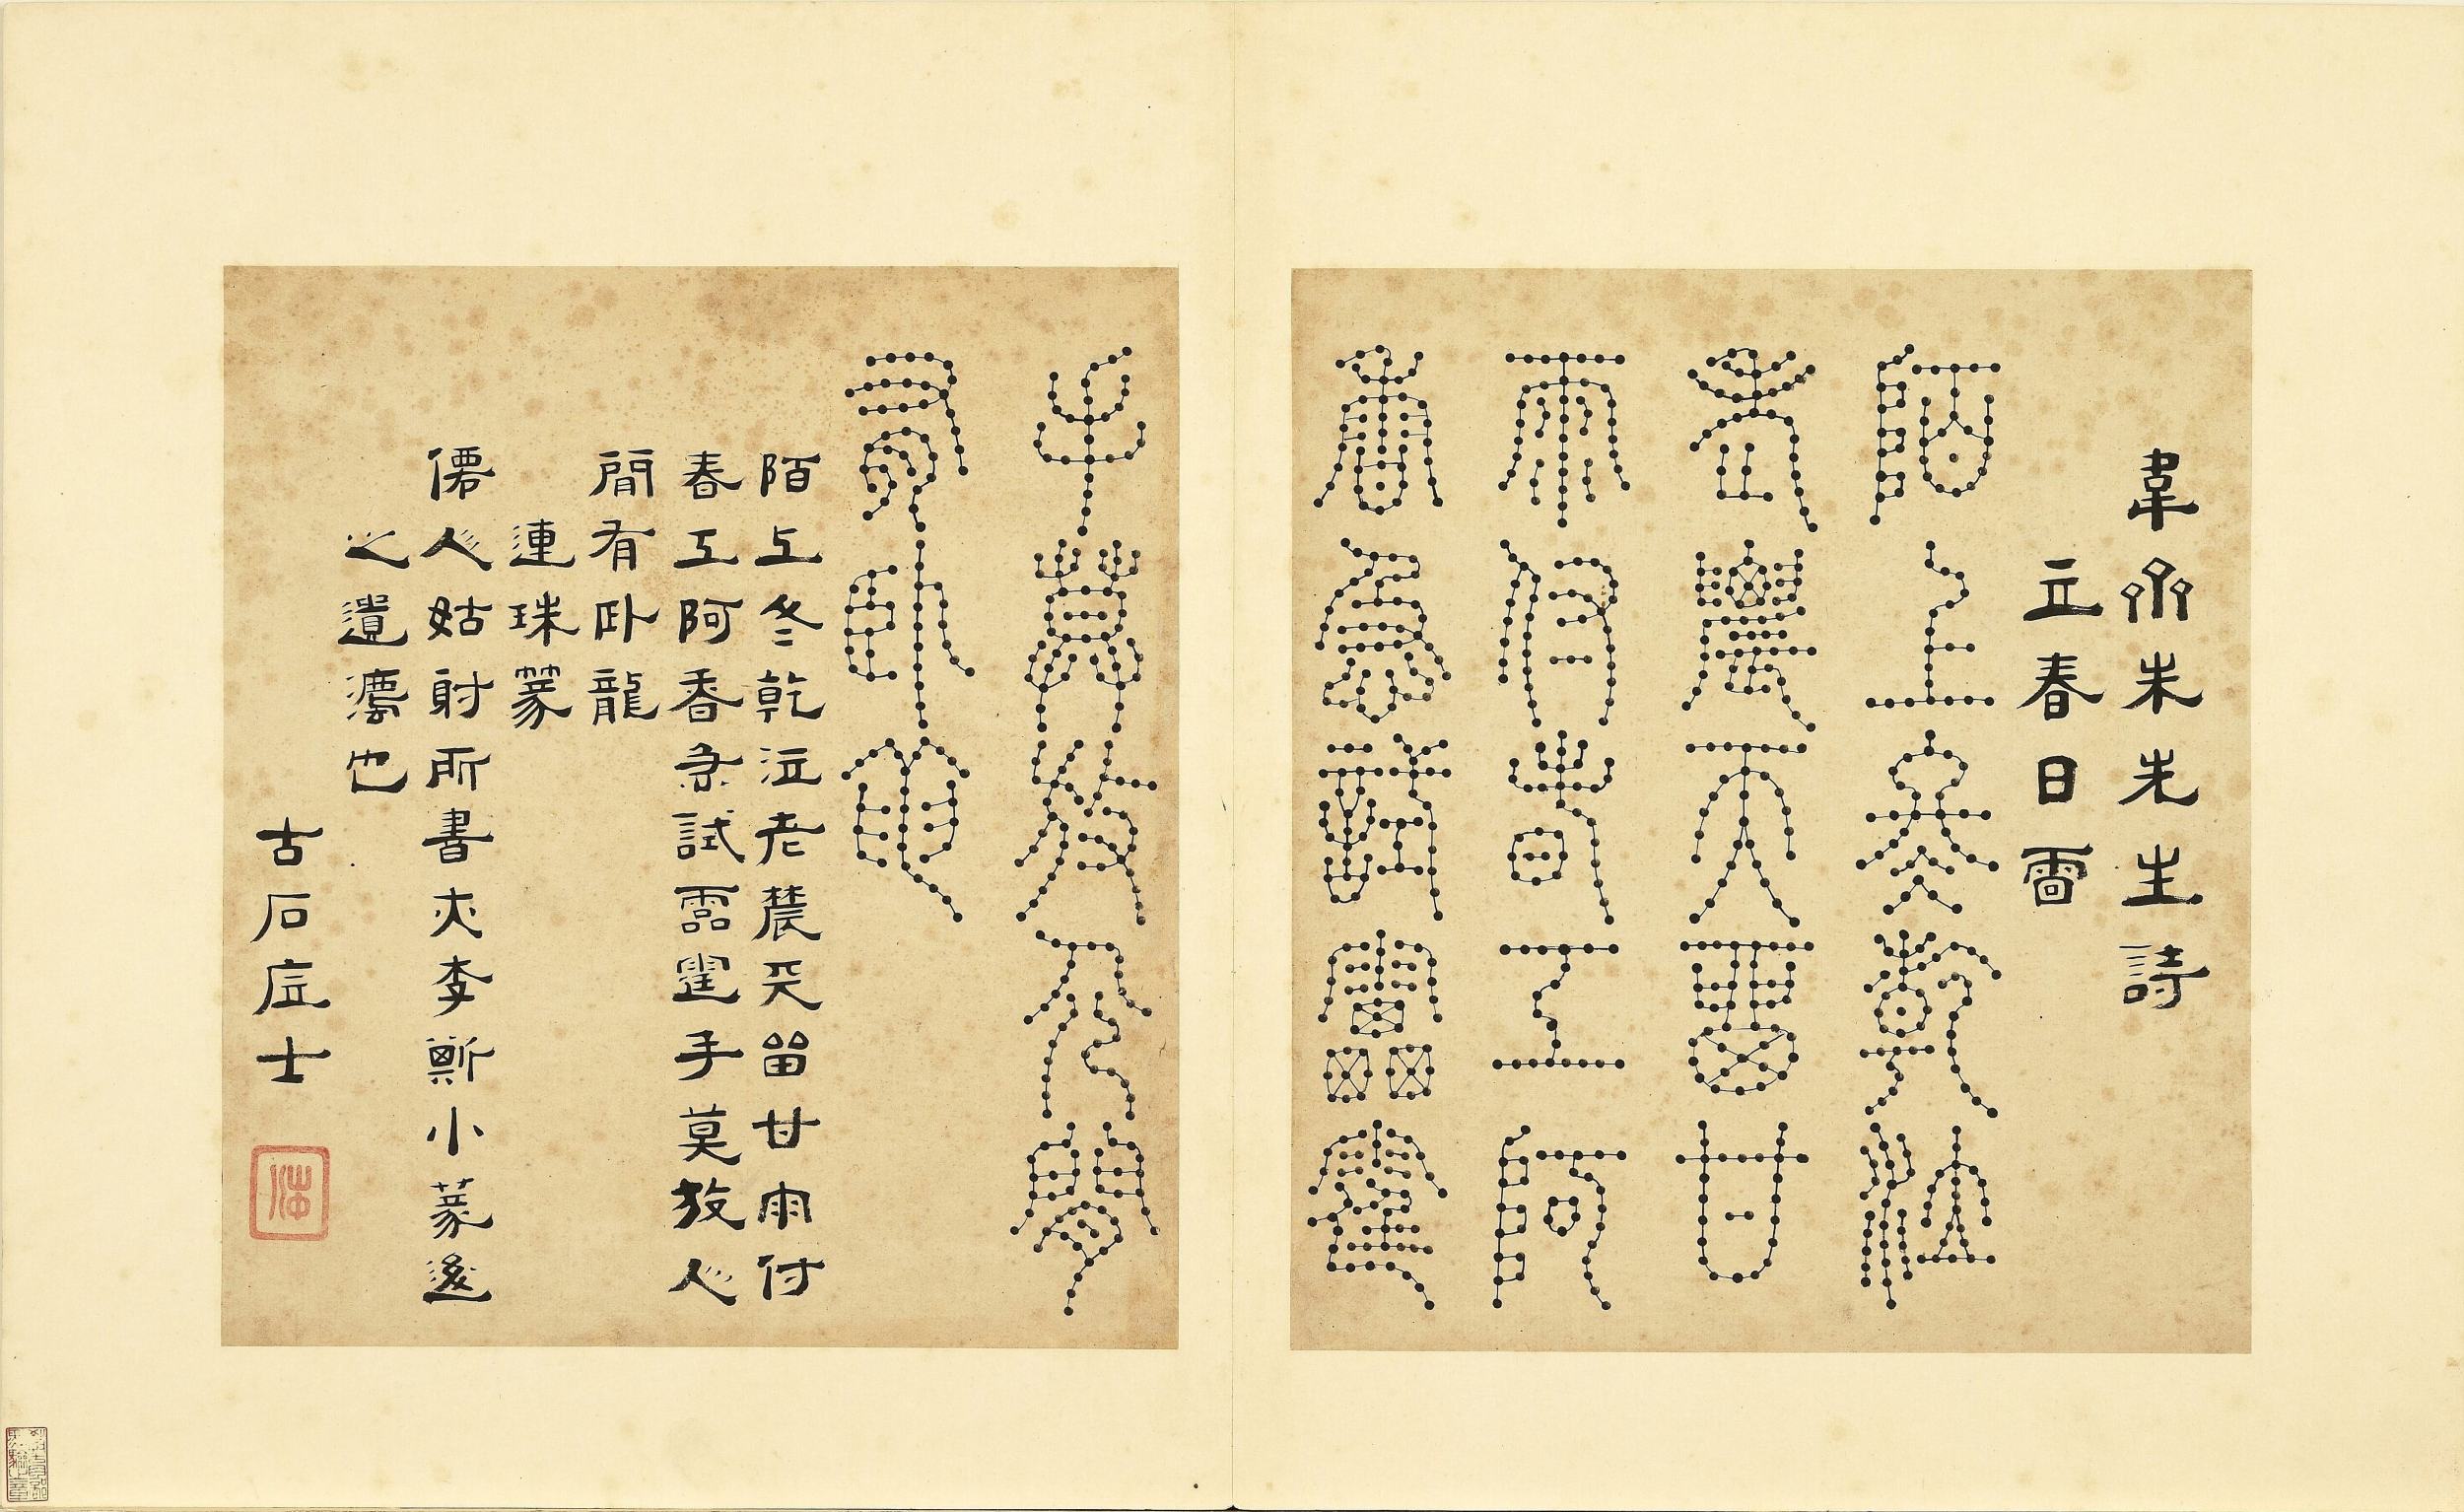 韋齋朱先生詩
立春日雷
陌上冬乾泣
老農天留甘
雨付春工阿
香急試雷霆
手莫放人間
有臥龍
陌上冬乾泣老農天留甘雨付
春工阿香急試靁霆手莫放人
間有臥龍
連珠篆
僊人姑射所書亦李斯小篆後
之遺灋也
古石居士